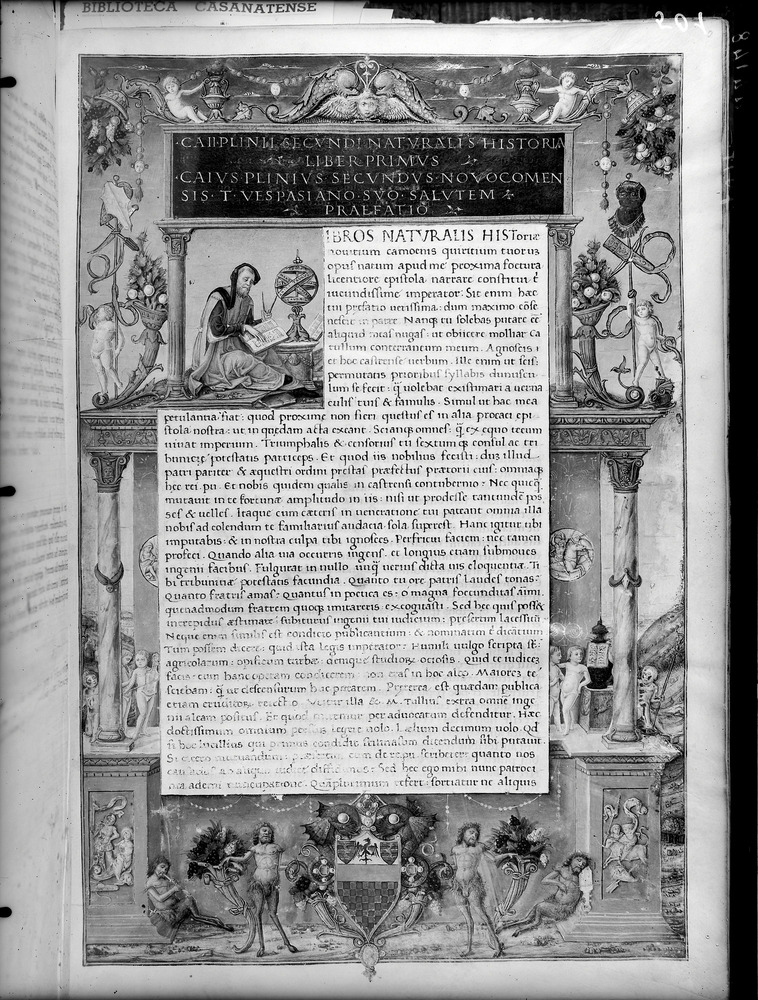 BIBLIOTECA CASANATENSE
201
CAII·PLINII·SECVNDI·NATVRALIS HISTORIA
LIBER·PRIMVS
·CAIVS PLINIVS SECVNDVS·NOVOCOMEN
SIS·T·VESPASIANO·SVO·SALVTEM
PRAEFATIO
IBROS NATVRALIS HISToriæ
nouitium camoenis quiritium tuoruʒ
opus natum apud me proxima foetura
licentiore epistola narrare constitui t̄
iucundissime imperator· Sit enim hæc
tui prefatio uerissima: dum maximo cōse
nescit in patre· Nanqʒ tu solebas putare eē
aliquid meas nugas· ut obiicere molliar Ca
tullum conterraneum meum· Agnoscis &
et hoc castrense uerbum· Ille enim ut scis:
permutatis prioribus syllabis duriuscu
lum se fecit: q̄ uolebat existimari a uerna
culis tuis & famulis· Simul ut hac mea
petulantia fiat: quod proxime non fieri questus es in alia procaci epi
stola nostra: ut in quedam acta exeant· Sciantqʒ omnes: q̄ ex equo tecum
uiuat imperium· Triumphalis & censorius tu sextumqʒ consul ac tri
bunicie potestatis particeps· Et quod iis nobilius fecisti: duʒ illud
patri pariter & æquestri ordini prestas præfectus prætorii eius: omniaqʒ
hec rei pu· Et nobis quidem qualis in castrensi contubernio? Nec quicq̄
mutauit in te fortunæ amplitudo in iis: nisi ut prodesse tantundē pos
ses & uelles· Itaque cum cæteris in ueneratione tui pateant omnia illa
nobis ad colendum te familiarius audacia sola superest· Hanc igitur tibi
imputabis: & in nostra culpa tibi ignosces· Perfricui faciem: nec tamen
profeci· Quando alia uia occurris ingens· et longius etiam submoues
ingenii facibus· Fulgurat in nullo unqʒ uerius dicta uis eloquentiæ· Ti
bi tribunitiæ potestatis facundia· Quanto tu ore patris laudes tonas:
Quanto fratris amas? Quantus in poetica es: o magna foecunditas aīmi
quemadmodum fratrem quoqʒ imitareris excogitasti· Sed hec quis possʒ
intrepidus æstimare? subiturus ingenii tui iudicium: presertim lacessitū
Neque enim similis est conditio publicantium: & nominatim t̄ dicatium
Tum possem dicere: quid ista legis imperator? Humili uulgo scripta st̄:
agricolarum: opificum turbæ: denique studioruʒ ociosis· Quid te iudiceʒ
facis: cum hanc operam condicerem non eras in hoc albo· Maiorem te
sciebam: q̄ ut descensurum huc putarem· Preterea est quædam publica
etiam eruditoruʒ reiectio· Vtitur illa & M· Tullius extra omnē inge
nii aleam positus· Et quod miremur per aduocatum defenditur· Hæc
doctissimum omnium persius legere nolo· Lælium decimum uolo Qd̄
si hoc lucilius qui primus condidit stili nasum dicendum sibi putauit·
Si cicero mutuandum: præsertim cum de re pu· scriberet: quanto nos
causatius ab aliquo iudice defendimus· Sed hec ego mihi nunc patroci
nia ademi nuncupatione· Quā plurimum refert: sortiatur ne aliquis